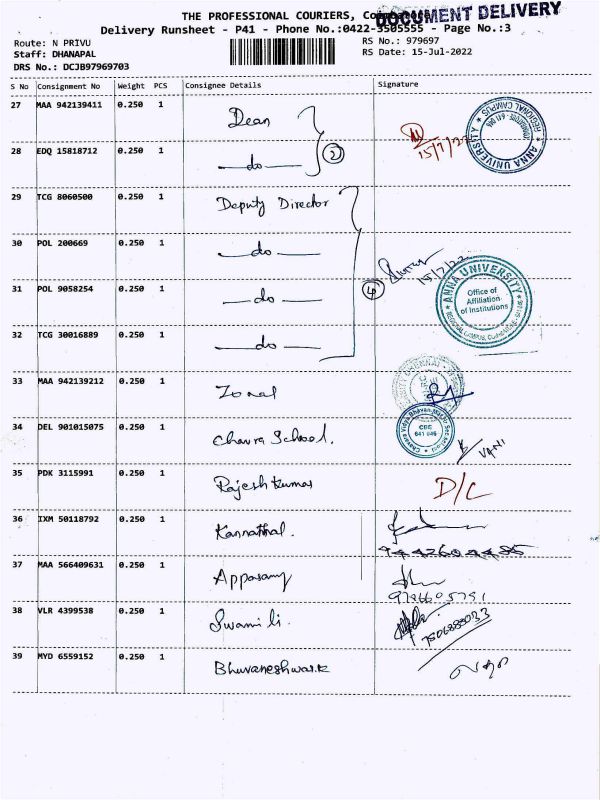 THE PROFESSIONAL COURIERS,
DOCUMENT DELIVERY
Delivery Runsheet - P41 - Phone No.:0422-3505555 - Page No.:3
Route: N PRIVU
RS No.: 979697
Staff: DHANAPAL
RS Date: 15-Jul-2022
DRS No.: DCJB97969703
S No Consignment No Weight PCS Consignee Details Signature
27 MAA 942139411 0.250 1 Dean
15/7/22
ANNA UNIVERSITY
REGIONAL CAMPUS
28 EDQ 15818712 0.250 1 do
2
29 TCG 8060500 0.250 1 Deputy Director
30 POL 200669 0.250 1 do
15/7/22
31 POL 9058254 0.250 1 do
4
ANNA UNIVERSITY
Office of
Affiliation
of Institutions
REGIONAL CAMPUS,
32 TCG 30016889 0.250 1 do
33 MAA 942139212 0.250 1 Zonal
34 DEL 901015075 0.250 1 Chavra School.
CBE
641 046
VANI
35 PDK 3115991 0.250 1 Rajesh Kumar
D/C
36 IXM 50118792 0.250 1 Kannathal.
37 MAA 566409631 0.250 1 Appasamy
38 VLR 4399538 0.250 1 Swami li.
39 MYD 6559152 0.250 1